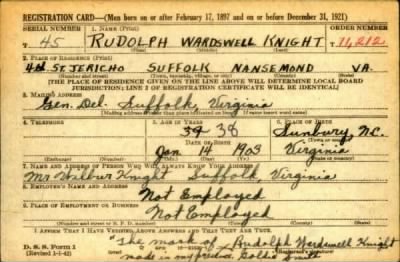 REGISTRATION CARD—(Men born on or after February 17, 1897 and on or before December 31, 1921)
SERIAL NUMBER 1. NAME (Print) ORDER NUMBER
T 45 RUDOLPH WARDSWELL KNIGHT T 11,212
(First) (Middle) (Last)
2. PLACE OF RESIDENCE (Print)
4th St. JERICHO SUFFOLK NANSEMOND VA.
(Number and street) (Town, township, village, or city) (County) (State)
[THE PLACE OF RESIDENCE GIVEN ON THE LINE ABOVE WILL DETERMINE LOCAL BOARD
JURISDICTION; LINE 2 OF REGISTRATION CERTIFICATE WILL BE IDENTICAL]
3. MAILING ADDRESS
Gen. Del. Suffolk, Virginia
4. TELEPHONE 5. AGE IN YEARS 6. PLACE OF BIRTH
39 38 Sunbury, N.C.
DATE OF BIRTH
Jan 14 1903 Virginia
(Exchange) (Number) (Mo.) (Day) (Yr.) (State or country)
7. NAME AND ADDRESS OF PERSON WHO WILL ALWAYS KNOW YOUR ADDRESS
Mr. Wilbur Knight Suffolk, Virginia
8. EMPLOYER'S NAME AND ADDRESS
Not Employed
9. PLACE OF EMPLOYMENT OR BUSINESS
Not Employed
I AFFIRM THAT I HAVE VERIFIED ABOVE ANSWERS AND THAT THEY ARE TRUE.
D. S. S. Form 1 "The mark of Rudolph Wardswell Knight
(Revised 1-1-42) made in my presence, Goldie Smith